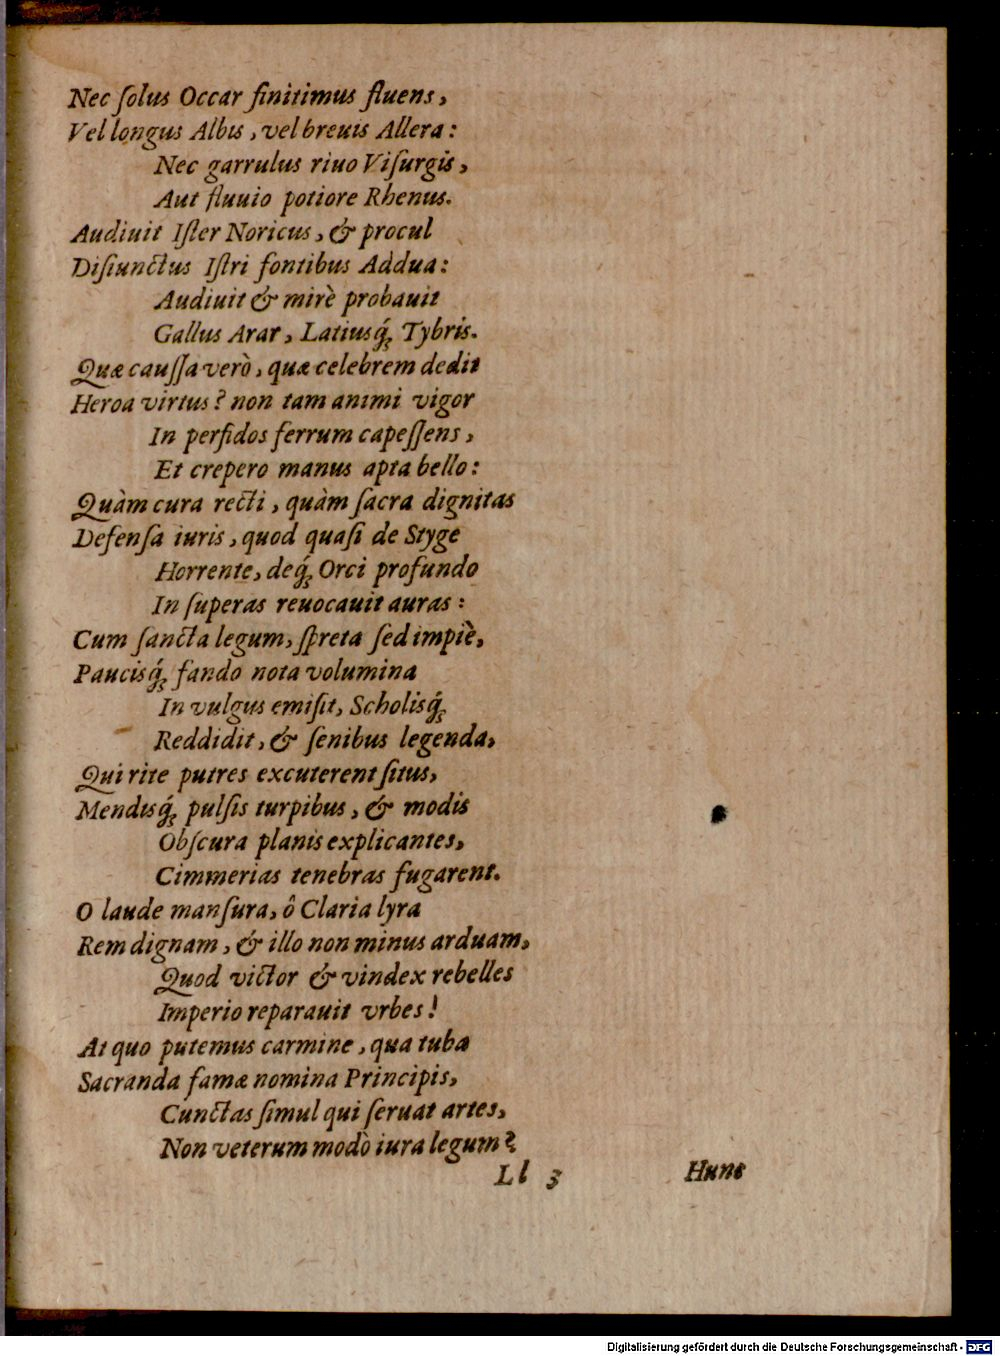 Nec ſolus Occar finitimus fluens,
Vel longus Albis, vel breuis Allera:
Nec garrulus riuo Viſurgis,
Aut fluuio potiore Rhenus.
Audiuit Iſter Noricus, & procul
Diſiunctus Iſtri fontibus Addua:
Audiuit & mirè probauit
Gallus Arar, Latiusq́; Tybris.
Quæ cauſſa verò, quæ celebrem dedit
Heroa virtus? non tam animi vigor
In perfidos ferrum capeſſens,
Et crepero manus apta bello:
Quàm cura recti, quàm ſacra dignitas
Defenſa iuris, quod quaſi de Styge
Horrente, deq́; Orci profundo
In ſuperas reuocauit auras:
Cum ſancta legum, ſpreta ſed impiè,
Paucisq́; fando nota volumina
In vulgus emiſit, Scholisq́;
Reddidit, & ſenibus legenda,
Qui rite putres excuterent ſitus,
Mendisq́; pulſis turpibus, & modis
Obſcura planis explicantes,
Cimmerias tenebras fugarent.
O laude manſura, ô Claria lyra
Rem dignam, & illo non minus arduam,
Quod victor & vindex rebelles
Imperio reparauit vrbes!
At quo putemus carmine, qua tuba
Sacranda famæ nomina Principis,
Cunctas ſimul qui ſeruat artes,
Non veterum modò iura legum?
Ll 3 Hunc
Digitalisierung gefördert durch die Deutsche Forschungsgemeinschaft - DFG